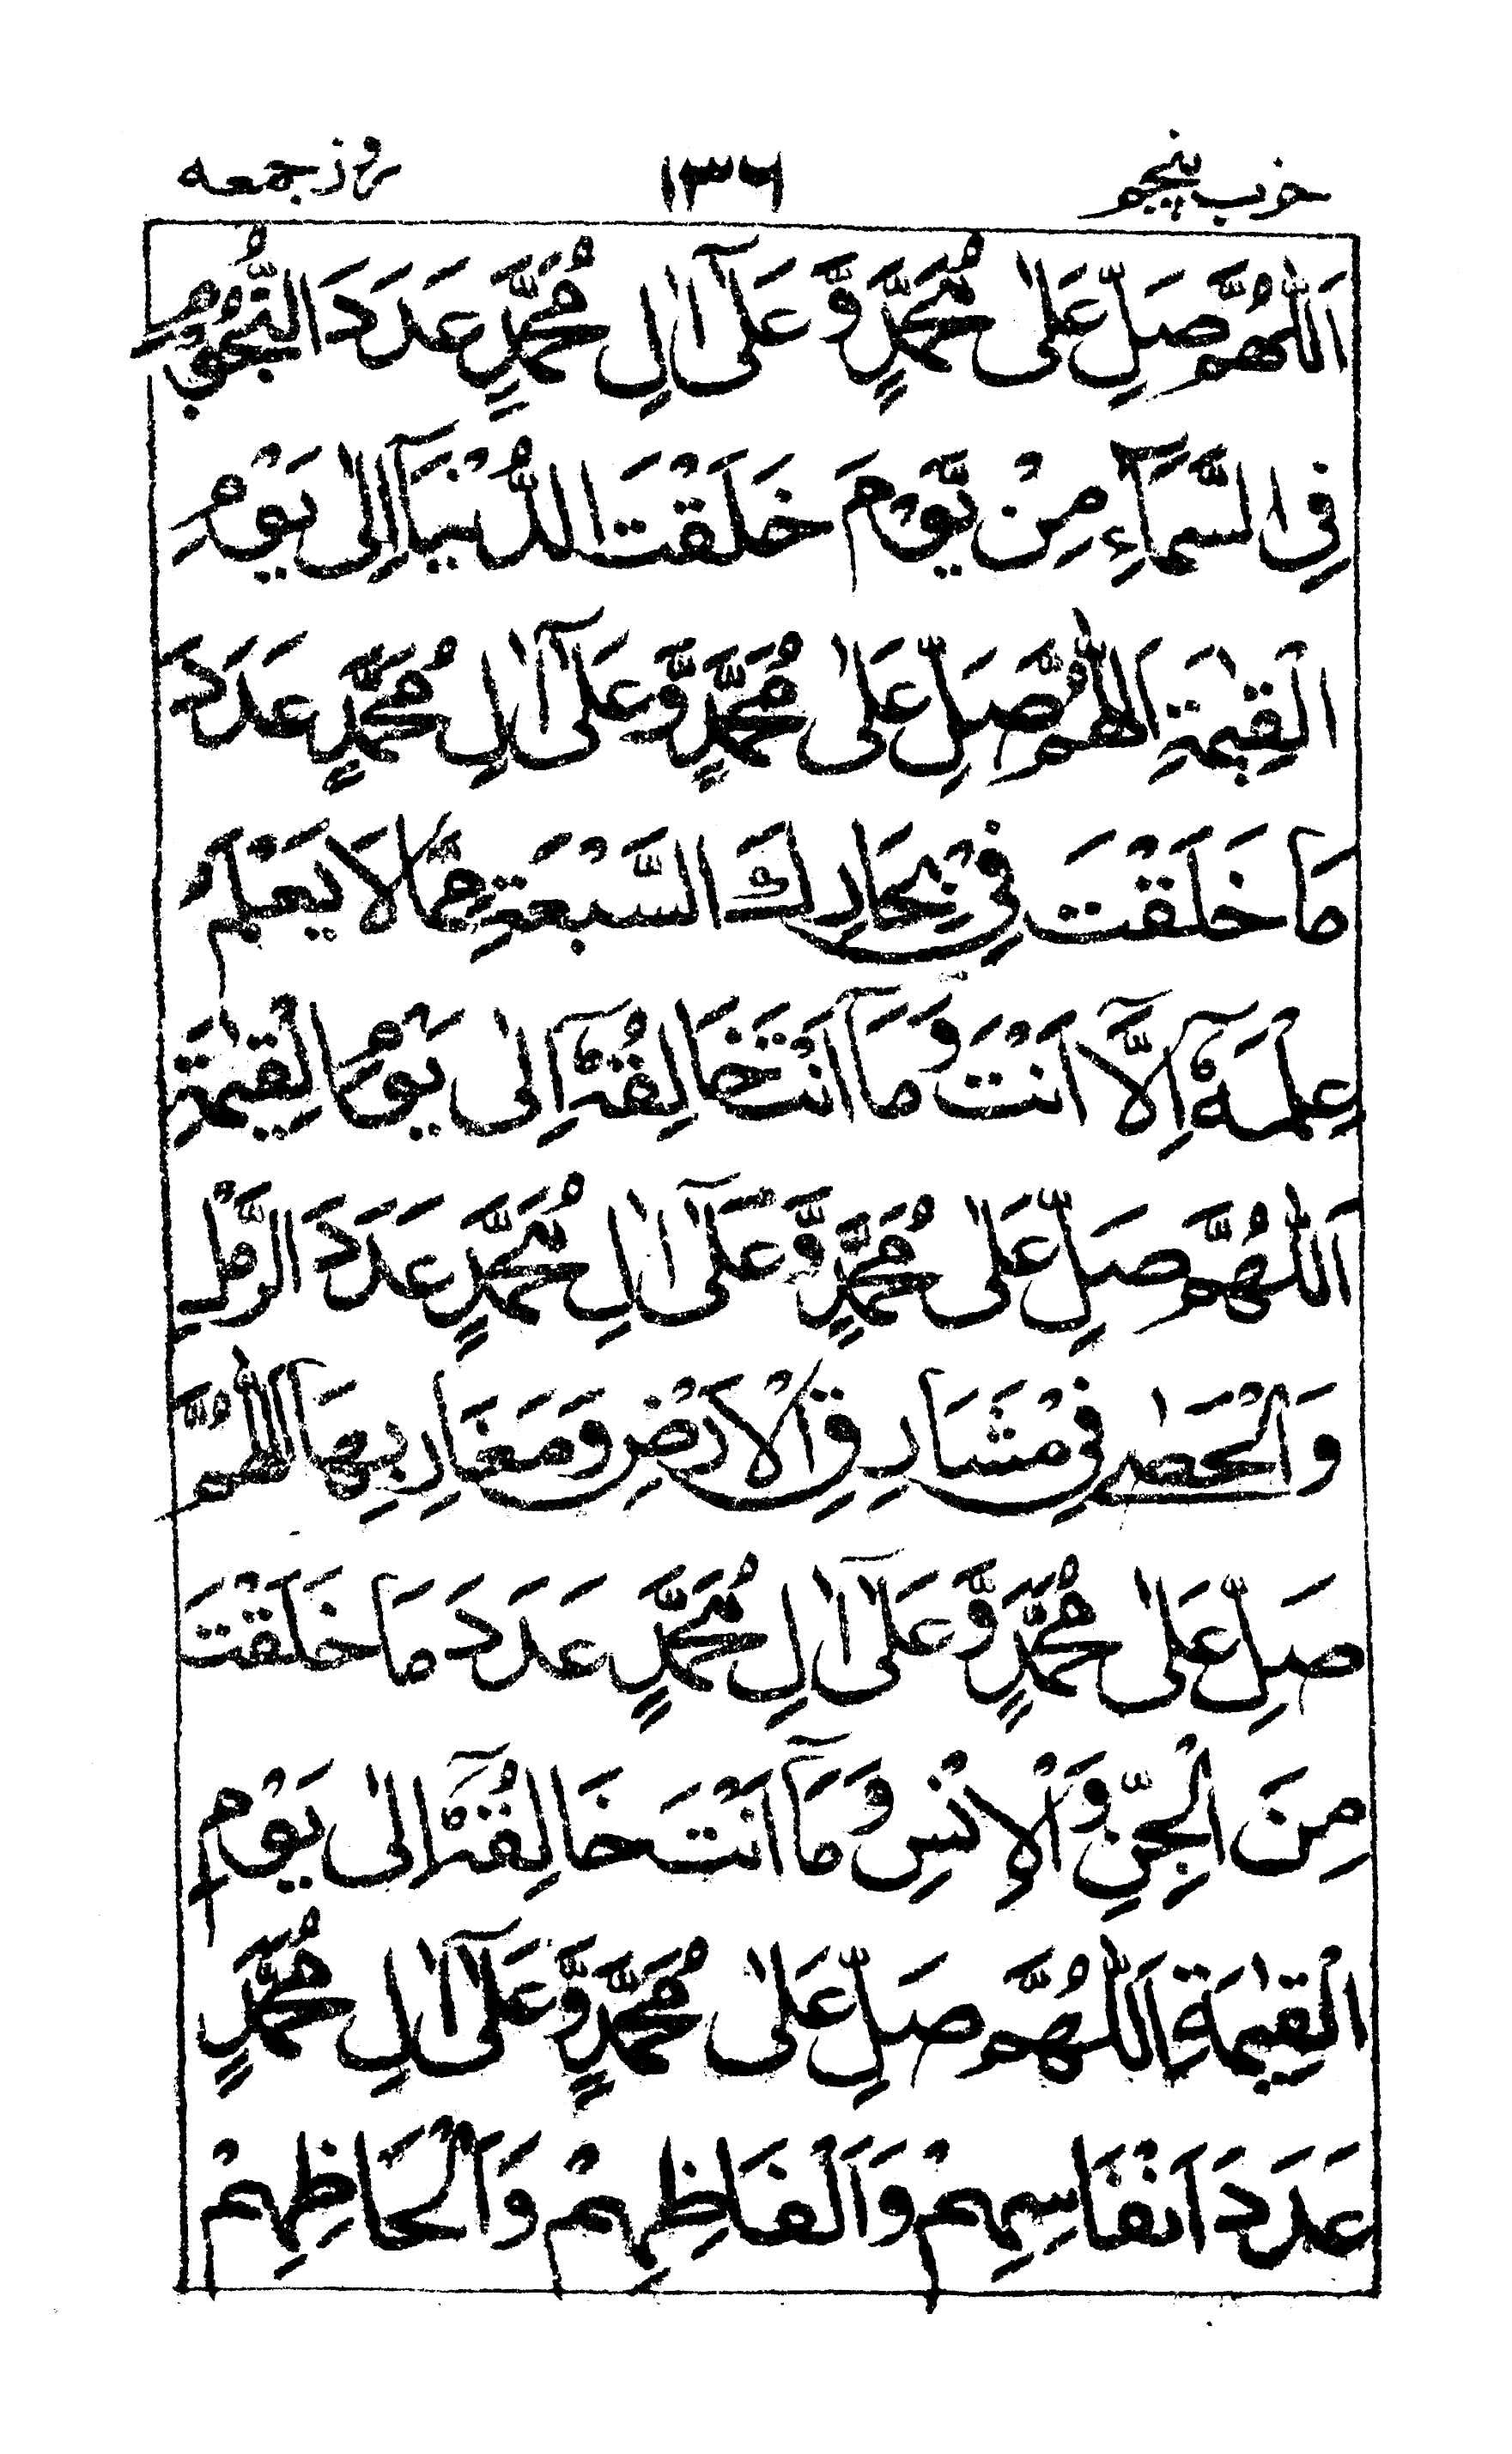 حزب پنجم ١٣٦ روز جمعه
اَللّٰهُمَّ صَلِّ عَلٰى مُحَمَّدٍ وَّعَلٰٓى اٰلِ مُحَمَّدٍ عَدَدَ النُّجُوْمِ
فِى السَّمَآءِ مِنْ يَّوْمَ خَلَقْتَ الدُّنْيَآ اِلٰى يَوْمِ
الْقِيٰمَةِ اَللّٰهُمَّ صَلِّ عَلٰى مُحَمَّدٍ وَّعَلٰٓى اٰلِ مُحَمَّدٍ عَدَدَ
مَا خَلَقْتَ فِىْ بِحَارِكَ السَّبْعَةِ مِمَّا لَا يَعْلَمُ
عِلْمَهٗٓ اِلَّآ اَنْتَ وَمَآ اَنْتَ خَالِقُهٗٓ اِلٰى يَوْمِ الْقِيٰمَةِ
اَللّٰهُمَّ صَلِّ عَلٰى مُحَمَّدٍ وَّعَلٰٓى اٰلِ مُحَمَّدٍ عَدَدَ الرَّمْلِ
وَالْحَصٰى فِىْ مَشَارِقِ الْاَرْضِ وَمَغَارِبِهَآ اَللّٰهُمَّ
صَلِّ عَلٰى مُحَمَّدٍ وَّعَلٰٓى اٰلِ مُحَمَّدٍ عَدَدَ مَا خَلَقْتَ
مِنَ الْجِنِّ وَالْاِنْسِ وَمَآ اَنْتَ خَالِقُهٗٓ اِلٰى يَوْمِ
الْقِيٰمَةِ اَللّٰهُمَّ صَلِّ عَلٰى مُحَمَّدٍ وَّعَلٰٓى اٰلِ مُحَمَّدٍ
عَدَدَ اَنْفَاسِهِمْ وَاَلْفَاظِهِمْ وَاَلْحَاظِهِمْ